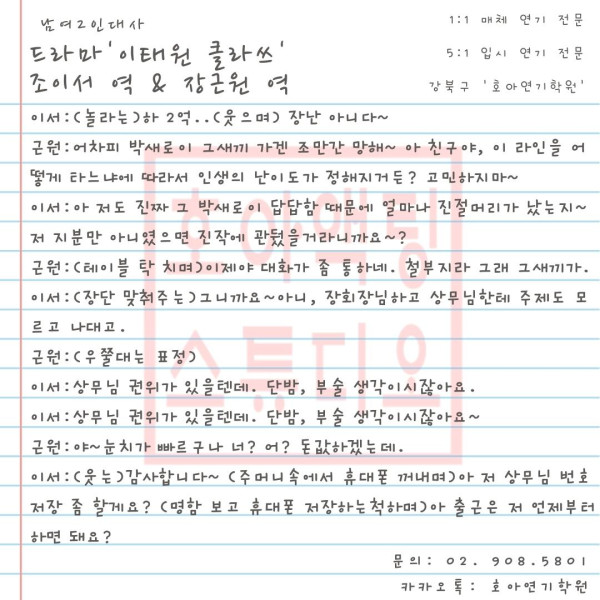 남여2인대사
1:1 매체 연기 전문
드라마'이태원 클라쓰'
5:1 입시 연기 전문
조이서 역 & 장근원 역
강북구 '호아연기학원'
이서:(놀라는)하 2억..(웃으며) 장난 아니다~
근원:어차피 박새로이 그새끼 가겐 조만간 망해~ 아 친구야, 이 라인을 어
떻게 타느냐에 따라서 인생의 난이도가 정해지거든? 고민하지마~
이서:아 저도 진짜 그 박새로이 답답함 때문에 얼마나 진절머리가 났는지~
저 지분만 아니였으면 진작에 관뒀을거라니까요~?
근원:(테이블 탁 치며)이제야 대화가 좀 통하네. 철부지라 그래 그새끼가.
이서:(장단 맞춰주는)그니까요~아니, 장회장님하고 상무님한테 주제도 모
르고 나대고.
근원:(우쭐대는 표정)
이서:상무님 권위가 있을텐데. 단밤, 부술 생각이시잖아요.
이서:상무님 권위가 있을텐데. 단밤, 부술 생각이시잖아요~
근원:야~눈치가 빠르구나 너? 어? 돈값하겠는데.
이서:(웃는)감사합니다~ (주머니속에서 휴대폰 꺼내며)아 저 상무님 번호
저장 좀 할게요? (명함 보고 휴대폰 저장하는척하며)아 출근은 저 언제부터
하면 돼요?
문의: 02. 908.5801
카카오톡: 호아연기학원
호아액팅
스튜디오